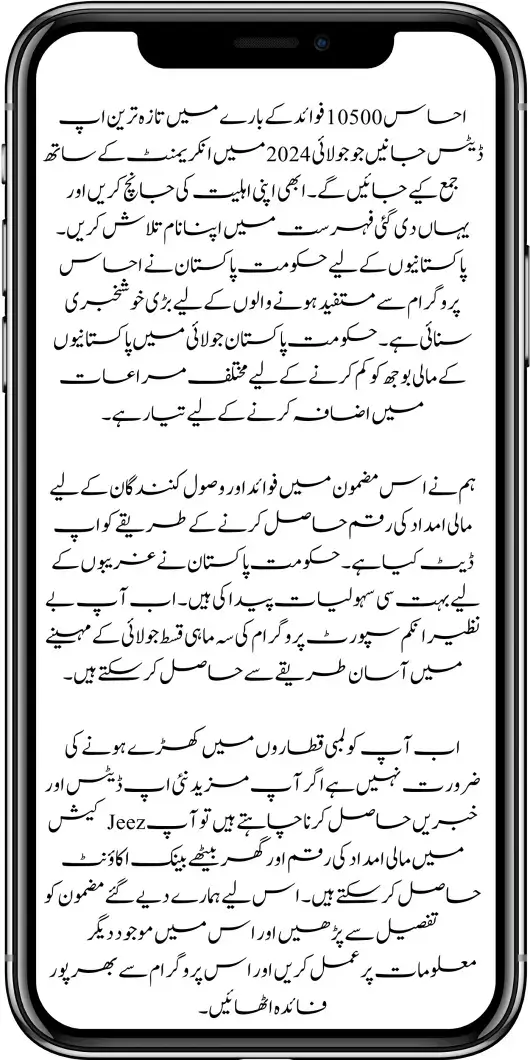 احساس 10500 فوائد کے بارے میں تازہ ترین اپ
ڈیٹس جانیں جو جولائی 2024 میں انکریمنٹ کے ساتھ
جمع کیے جائیں گے۔ ابھی اپنی اہلیت کی جانچ کریں اور
یہاں دی گئی فہرست میں اپنا نام تلاش کریں۔
پاکستانیوں کے لیے حکومت پاکستان نے احساس
پروگرام سے مستفید ہونے والوں کے لیے بڑی خوشخبری
سنائی ہے۔ حکومت پاکستان جولائی میں پاکستانیوں
کے مالی بوجھ کو کم کرنے کے لیے مختلف مراعات
میں اضافہ کرنے کے لیے تیار ہے۔
ہم نے اس مضمون میں فوائد اور وصول کنندگان کے لیے
مالی امداد کی رقم حاصل کرنے کے طریقے کو اپ
ڈیٹ کیا ہے۔ حکومت پاکستان نے غریبوں کے
لیے بہت سی سہولیات پیدا کی ہیں۔ اب آپ بے
نظیر انکم سپورٹ پروگرام کی سہ ماہی قسط جولائی کے مہینے
میں آسان طریقے سے حاصل کر سکتے ہیں۔
اب آپ کو لمبی قطاروں میں کھڑے ہونے کی
ضرورت نہیں ہے اگر آپ مزید نئی اپ ڈیٹس اور
خبریں حاصل کرنا چاہتے ہیں تو آپ Jeez کیش
میں مالی امداد کی رقم اور گھر بیٹھے بینک اکاؤنٹ
حاصل کر سکتے ہیں۔ اس لیے ہمارے دیے گئے مضمون کو
تفصیل سے پڑھیں اور اس میں موجود دیگر
معلومات پر عمل کریں اور اس پروگرام سے بھرپور
فائدہ اٹھائیں۔